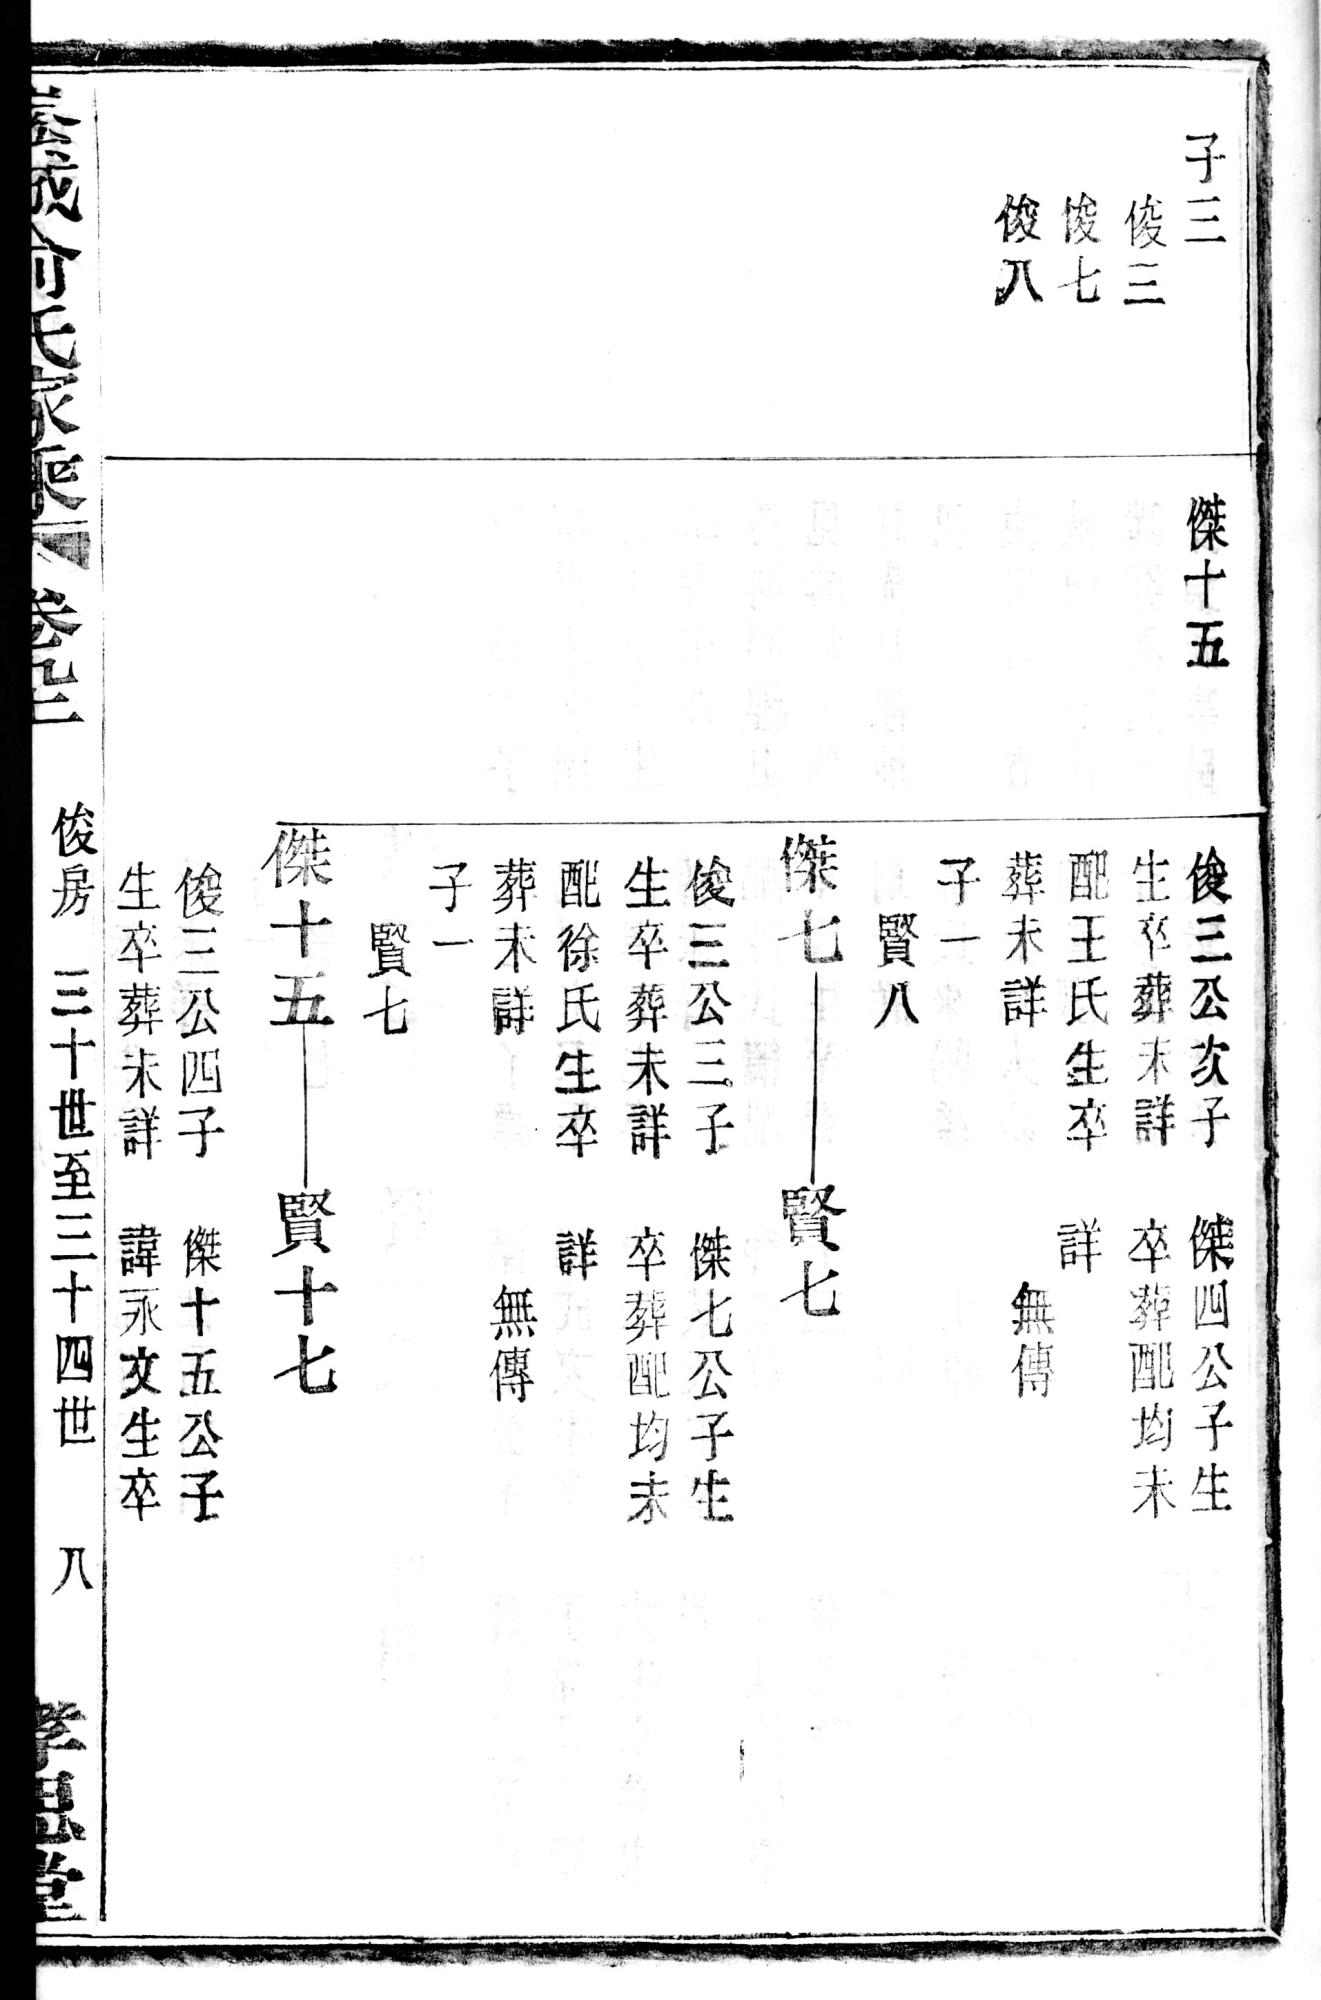 子三
俊三
俊七
俊八
傑十五
俊三公次子
生卒葬未詳
配王氏生卒
葬未詳
子一
賢八
傑七
俊三公三子
生卒葬未詳
配徐氏生卒
葬未詳
子一
賢七
傑十五
俊三公四子
生卒葬未詳
傑四公子生
卒葬配均未
詳
無傳
賢七
傑七公子生
卒葬配均未
詳
無傳
賢十七
傑十五公子
諱永文生卒
俞氏家乘
卷
俊房
三十世至三十四世
八
孝思堂